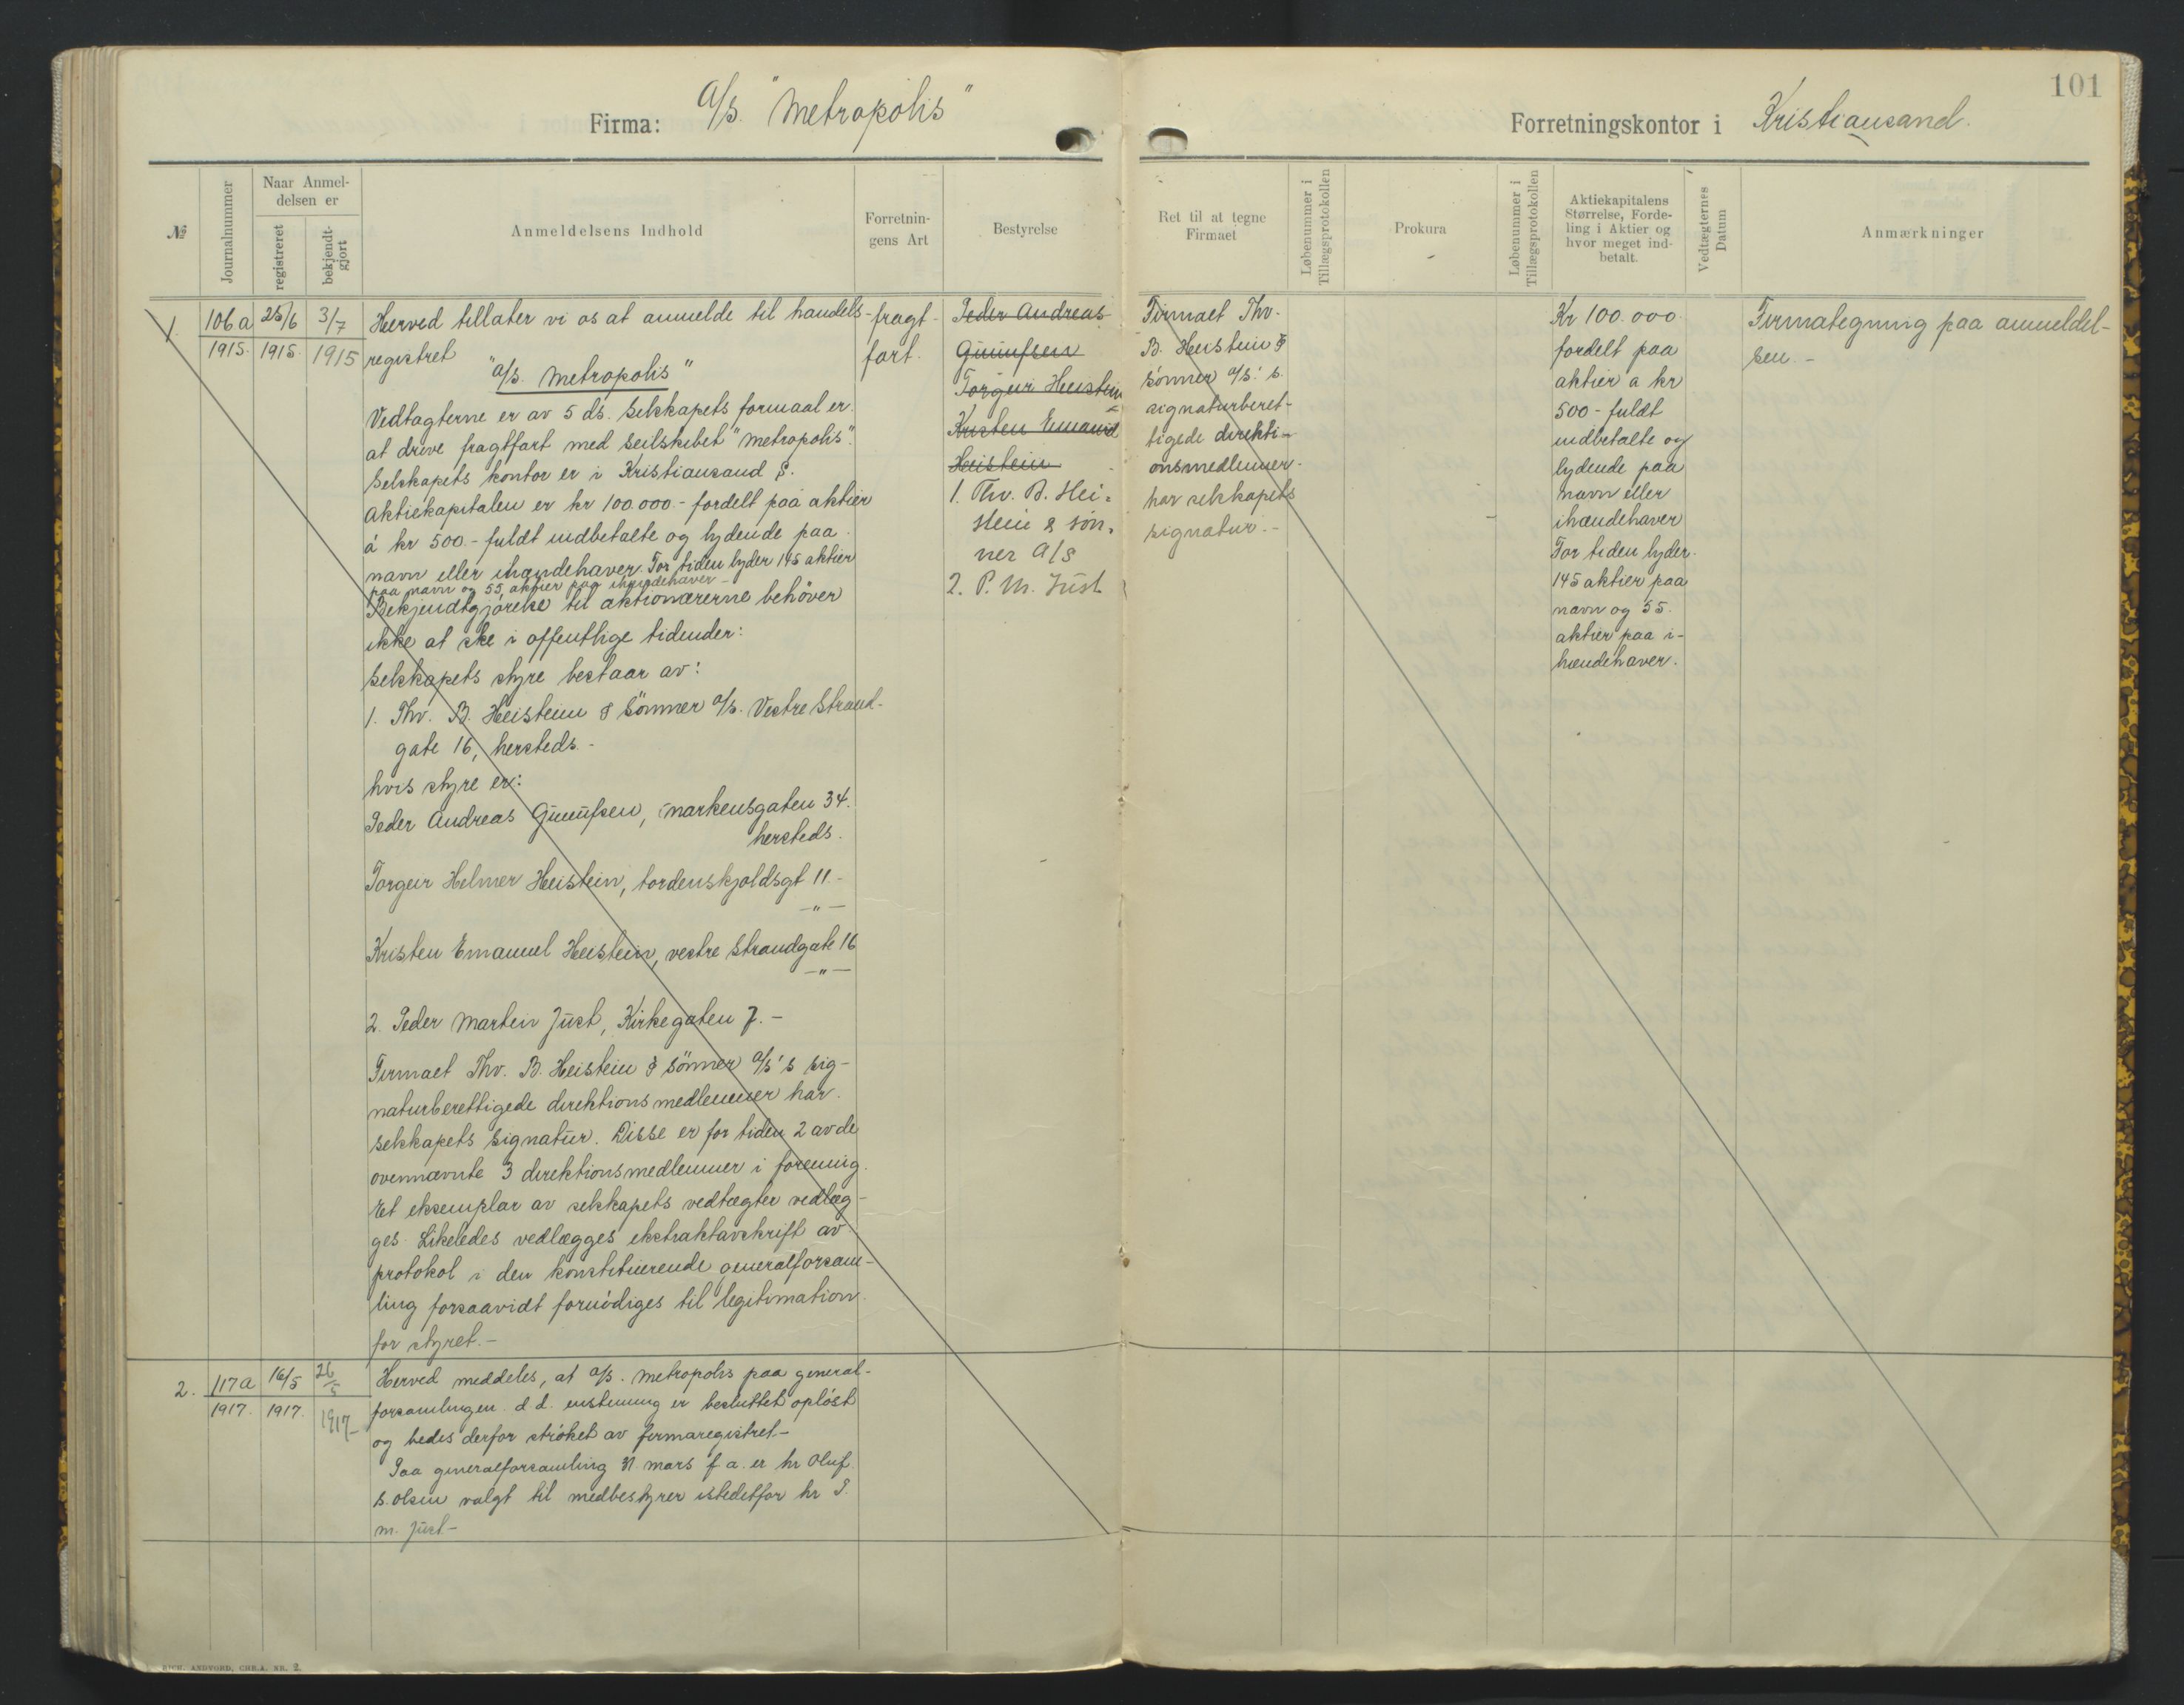 101
Firma: A/S. "Metropolis"
Forretningskontor i Kristiansand.
№
Journalnummer
Naar Anmel-
delsen er
registreret
bekjendt-
gjort
Anmeldelsens Indhold
Forretnin-
gens Art
Bestyrelse
Ret til at tegne
Firmaet
Løbenummer i
Tillægsprotokollen
Prokura
Løbenummer i
Tillægsprotokollen
Aktiekapitalens
Størrelse, Forde-
ling i Aktier og
hvor meget ind-
betalt.
Vedtægternes
Datum
Anmærkninger
1.
106a
1915.
25/6
1915.
3/7
1915
Herved tillater vi os at anmelde til handels-
registret
"a/s. Metropolis"
Vedtagterne er av 5 ds. Selskapets formaal er.
at dreve fragtfart med seilskibet "Metropolis".
Selskapets kontor er i Kristiansand S.
Aktiekapitalen er kr 100.000.- fordelt paa aktier
á kr 500.- fuldt indbetalte og lydende paa
navn eller ihændehaver. For tiden lyder 145 aktier
paa navn og 55 aktier paa ihændehaver -
Bekjendtgjørelse til aktionærerne behöver
ikke at ske i offentlige tidender:
Selskapets styre bestaar av:
1. Thv. B. Heistein & Sönner a/s. Vestre Strand-
gate 16, hersteds. -
hvis styre er:
Peder Andreas Gunufsen, Markensgaten 34.
hersteds.
Torgeir Helmer Heistein, tordenskjoldsgt 11. -
-"-
Kristen Emanuel Heistein, vestre Strandgate 16
-"-
2. Peder Martin Just, Kirkegaten 7. -
Firmaet Thv. B. Heistein & Sönner a/s's sig-
naturberettigede direktionsmedlemmer har
selskapets signatur. Disse er for tiden 2 av de
ovennævnte 3 direktionsmedlemmer i forening.
Et eksemplar av selskapets vedtægter vedlæg-
ges. Likeledes vedlægges ekstraktavskrift av
protokol i den konstituerende generalforsam-
ling forsaavidt fornödiges til legitimation
for styret. -
fragt-
fart.
Peder Andreas
Gunufsen
Torgeir Heistein
Kristen Emanuel
Heistein
1. Thv. B. Hei-
stein & Søn-
ner A/S
2. P. M. Just
Firmaet Thv.
B. Heistein &
Sönner a/s.'s.
signaturberet-
tigede direkti-
onsmedlemmer
har selskapets
signatur. -
Kr 100.000.
fordelt paa
aktier a kr
500 - fuldt
indbetalte og
lydende paa
navn eller
ihændehaver
For tiden lyder
145 aktier paa
navn og 55
aktier paa i-
hændehaver.
Firmategning paa anmeldel-
sen. -
2.
117a
1917.
16/5
1917.
26/5
1917-
Herved meddeles, at a/s. Metropolis paa general-
forsamlingen d.d. enstemmig er besluttet oplöst
og bedes derfor ströket av firmaregistret. -
Paa generalforsamling 31 mars f.a. er hr Oluf
S. Olsen valgt til medbestyrer istedetfor hr P.
M. Just -
RICH. ANDVORD, CHR.A. NR. 2.